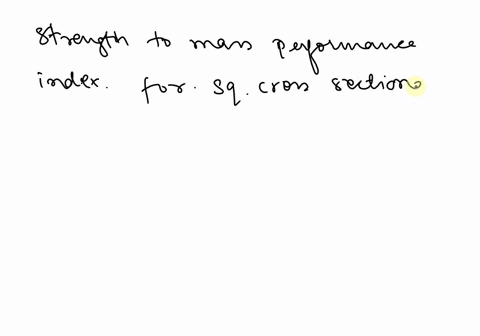 Strength to mass performance
index. for. sq. cross section